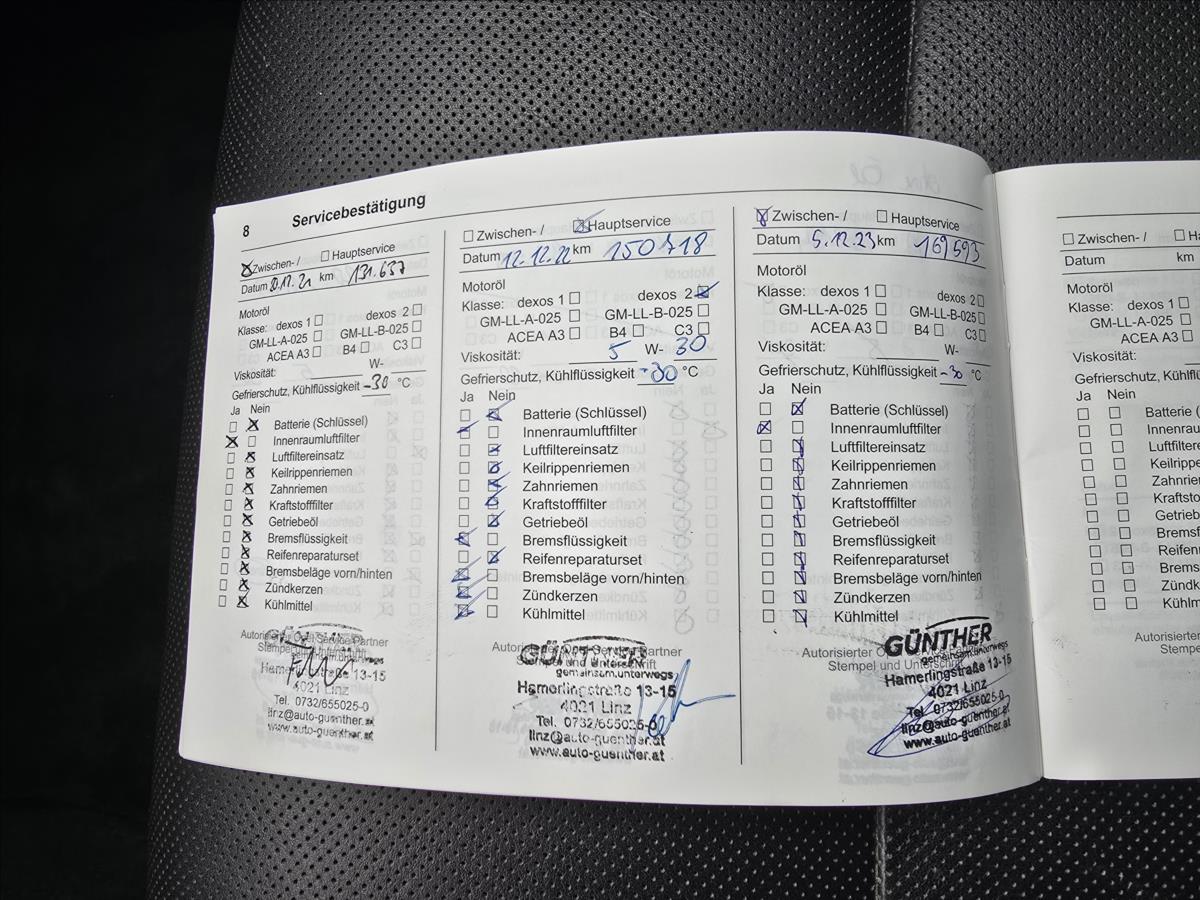 8 Servicebestätigung
Zwischen- / Hauptservice
Datum km 131.637
Motoröl
Klasse: dexos 1 dexos 2
GM-LL-A-025 GM-LL-B-025
ACEA A3 B4 C3
Viskosität: W-
Gefrierschutz, Kühlflüssigkeit -30 °C
Ja Nein
Batterie (Schlüssel)
Innenraumluftfilter
Luftfiltereinsatz
Keilrippenriemen
Zahnriemen
Kraftstofffilter
Getriebeöl
Bremsflüssigkeit
Reifenreparaturset
Bremsbeläge vorn/hinten
Zündkerzen
Kühlmittel
Autorisierter Opel Service Partner
Stempel und Unterschrift
Hamerlingstraße 13-15
4021 Linz
Tel. 0732/655025-0
linz@auto-guenther.at
www.auto-guenther.at
Zwischen- / Hauptservice
Datum 12.12.22 km 150718
Motoröl
Klasse: dexos 1 dexos 2
GM-LL-A-025 GM-LL-B-025
ACEA A3 B4 C3
Viskosität: 5 W- 30
Gefrierschutz, Kühlflüssigkeit -30 °C
Ja Nein
Batterie (Schlüssel)
Innenraumluftfilter
Luftfiltereinsatz
Keilrippenriemen
Zahnriemen
Kraftstofffilter
Getriebeöl
Bremsflüssigkeit
Reifenreparaturset
Bremsbeläge vorn/hinten
Zündkerzen
Kühlmittel
Autorisierter Opel Service Partner
Stempel und Unterschrift
GÜNTHER
gemeinsam.unterwegs
Hamerlingstraße 13-15
4021 Linz
Tel. 0732/655025-0
linz@auto-guenther.at
www.auto-guenther.at
Zwischen- / Hauptservice
Datum 5.12.23 km 169593
Motoröl
Klasse: dexos 1 dexos 2
GM-LL-A-025 GM-LL-B-025
ACEA A3 B4 C3
Viskosität: W-
Gefrierschutz, Kühlflüssigkeit -30 °C
Ja Nein
Batterie (Schlüssel)
Innenraumluftfilter
Luftfiltereinsatz
Keilrippenriemen
Zahnriemen
Kraftstofffilter
Getriebeöl
Bremsflüssigkeit
Reifenreparaturset
Bremsbeläge vorn/hinten
Zündkerzen
Kühlmittel
Autorisierter
Stempel und Unterschrift
GÜNTHER
gemeinsam.unterwegs
Hamerlingstraße 13-15
4021 Linz
Tel. 0732/655025-0
linz@auto-guenther.at
www.auto-guenther.at
Zwischen- / Ha
Datum km
Motoröl
Klasse: dexos 1
GM-LL-A-025
ACEA A3
Viskosität:
Gefrierschutz, Kühlflüssigke
Ja Nein
Batterie (
Innenraum
Luftfiltere
Keilrippe
Zahnrieme
Kraftstoff
Getriebe
Bremsflü
Reifenre
Bremsb
Zündke
Kühlm
Autorisierter
Stempel